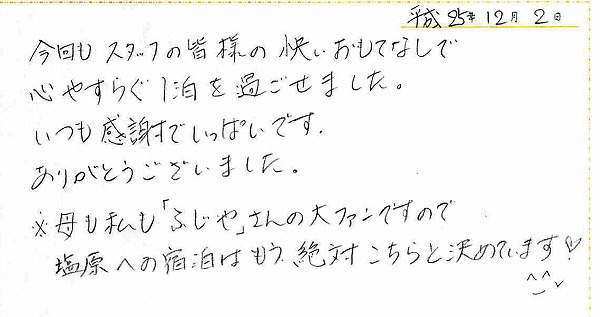 平成25年12月2日
今回も スタッフの皆様の 快いおもてなしで
心やすらぐ1泊を過ごせました。
いつも感謝でいっぱいです.
ありがとうございました。
※母も私も「ふじや」さんの大ファンですので
塩原への宿泊はもう 絶対こちらと決めています♡
^^